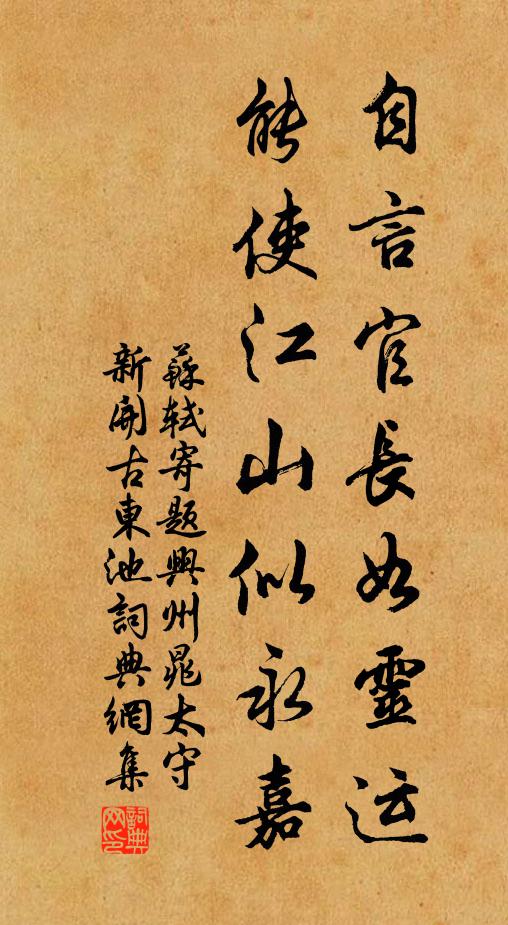 自言官長如靈运
能使江山似永嘉
蘇軾寄題興州晁太守
新開古東池詞典網集
詞典網印